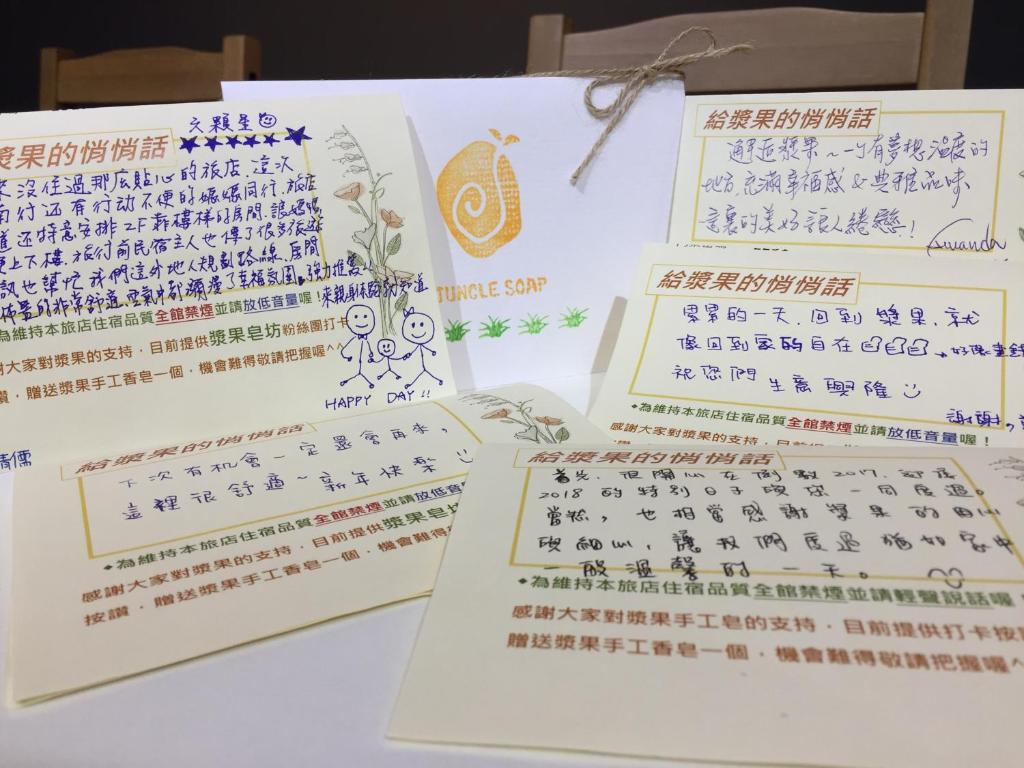 六顆星
漿果的悄悄話
來沒住過那麼貼心的旅店,這次
同行還有行动不便的媽媽同行,旅店
道还特意安排2F靠樓梯的房間,讓媽媽
更上下樓,旅行前民宿主人也
訊也幫忙我們這外地人規劃路線,房間
佈置的非常舒適,空氣中都瀰漫了幸福氛圍。強力推薦
來親身体驗就知道
為維持本旅店住宿品質全館禁煙並請放低音量喔!
謝大家對漿果的支持,目前提供漿果皂坊粉絲團打卡
讚,贈送漿果手工香皂一個,機會難得敬請把握喔^^
HAPPY DAY!!
JUNGLE SOAP
給漿果的悄悄話
邂逅漿果~一份有夢想溫度的
地方,充滿幸福感&典雅品味,
這裏的美好讓人繾綣!
Gwanda
給漿果的悄悄話
累累的一天,回到漿果,就
像回到家的自在
祝您們 生意興隆
謝謝,
◆為維持本旅店住宿品質全館禁煙並請放低音量喔!
感謝大家對漿果的支持,目前提供漿果皂坊粉
給漿果的悄悄話
下次有机會一定還會再來,
這裡很舒適~新年快樂
◆為維持本旅店住宿品質全館禁煙並請放低音
感謝大家對漿果的支持,目前提供漿果皂坊
按讚,贈送漿果手工香皂一個,機會難得
給漿果的悄悄話
首先,很開心在倒數2017,迎接
2018的特別日子與您一同度過。
當然,也相當感謝漿果的用心
與細心,讓我們度過猶如家中
一般溫馨的一天。
◆為維持本旅店住宿品質全館禁煙並請輕聲說話喔
感謝大家對漿果手工皂的支持,目前提供打卡按
贈送漿果手工香皂一個,機會難得敬請把握喔^